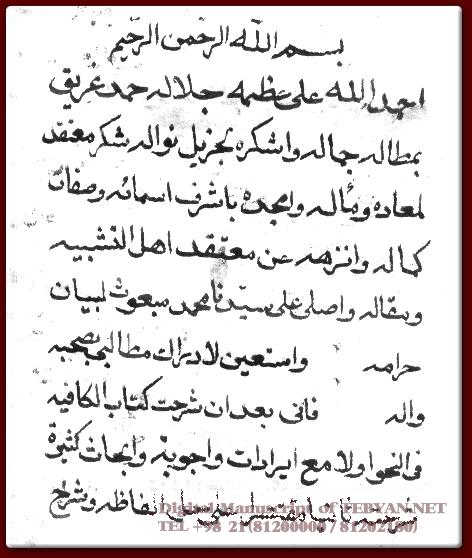 بسم الله الرحمن الرحيم
احمد الله على عظمه جلاله حمد غريق
بمطاله جماله واشكره بجزيل نواله شكر معتقد
لمعاده ومآله وامجده باشرف اسمائه وصفات
كماله وانزهه عن معتقد اهل التشبيه
ومقاله واصلى على سيدنا محمد مبعوث لبيان
حرامه واستعين لادراك مطالبى بصحبه
واله فانى بعد ان شرحت كتاب الكافيه
فى النحو اولا مع ايرادات واجوبة وابحاث كثيرة
الفاظه وشراح
Digital Manuscript of TEBYAN.NET
TEL +98 21(81200000 / 81202180)